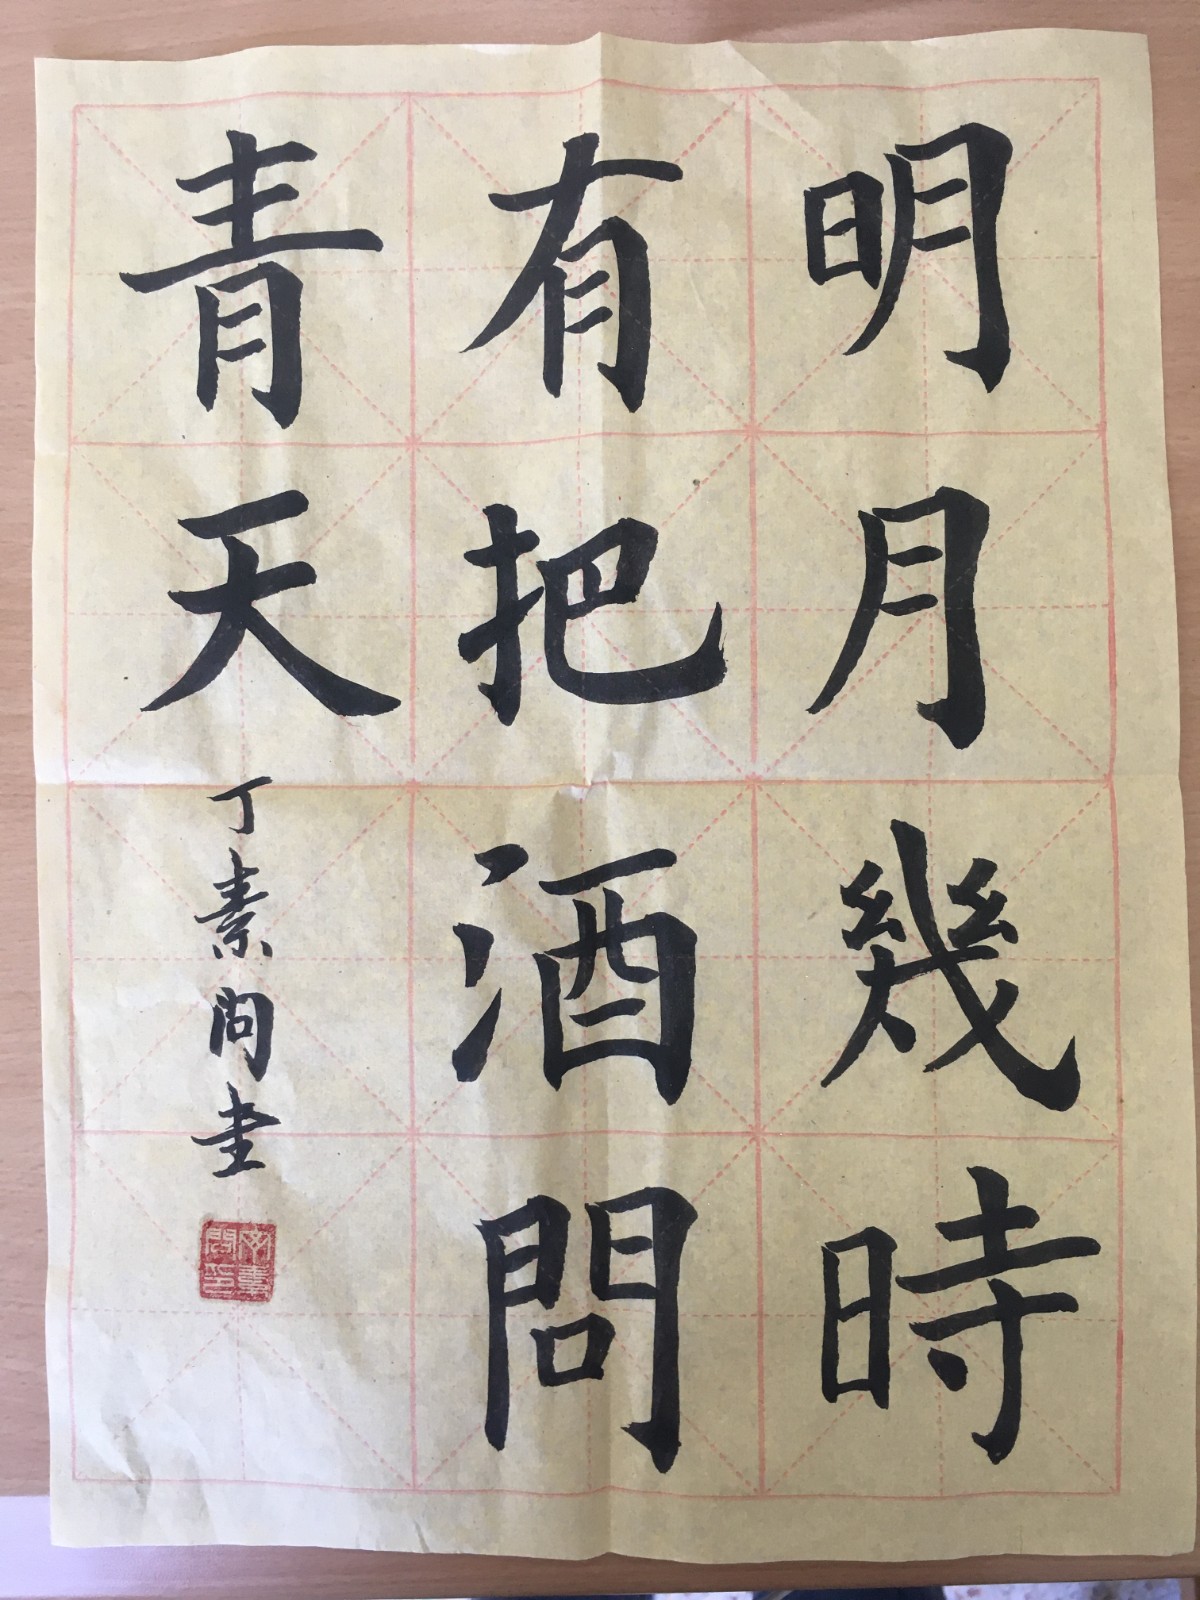 明月幾時
有把酒問
青天
丁 書